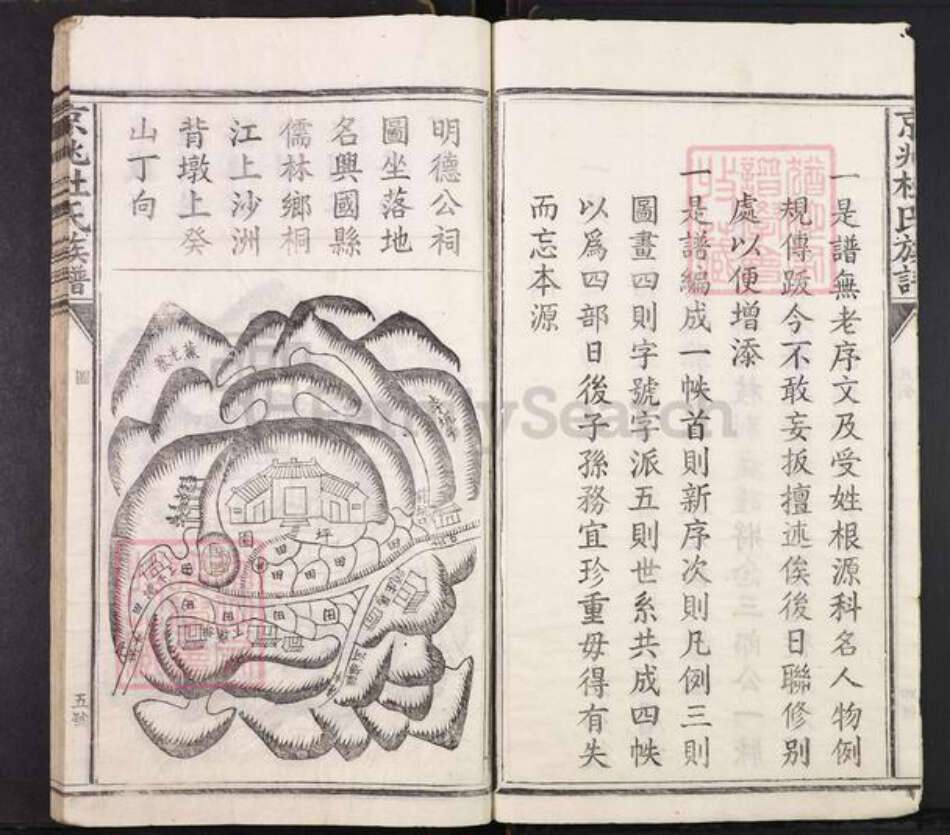 京兆杜氏族譜
一是譜無老序文及受姓根源科名人物例
規傳跋今不敢妄扳擅述俟後日聯修別
處以便增添
一是譜編成一帙首則新序次則凡例三則
圖畫四則字號字派五則世系共成四帙
以爲四部日後子孫務宜珍重毋得有失
而忘本源
明德公祠
圖坐落地
名興國縣
儒林鄉桐
江上沙洲
背墩上癸
山丁向
京兆杜氏族譜
圖
坪
田
田
田
田
田
田
田
田
FamilySearch